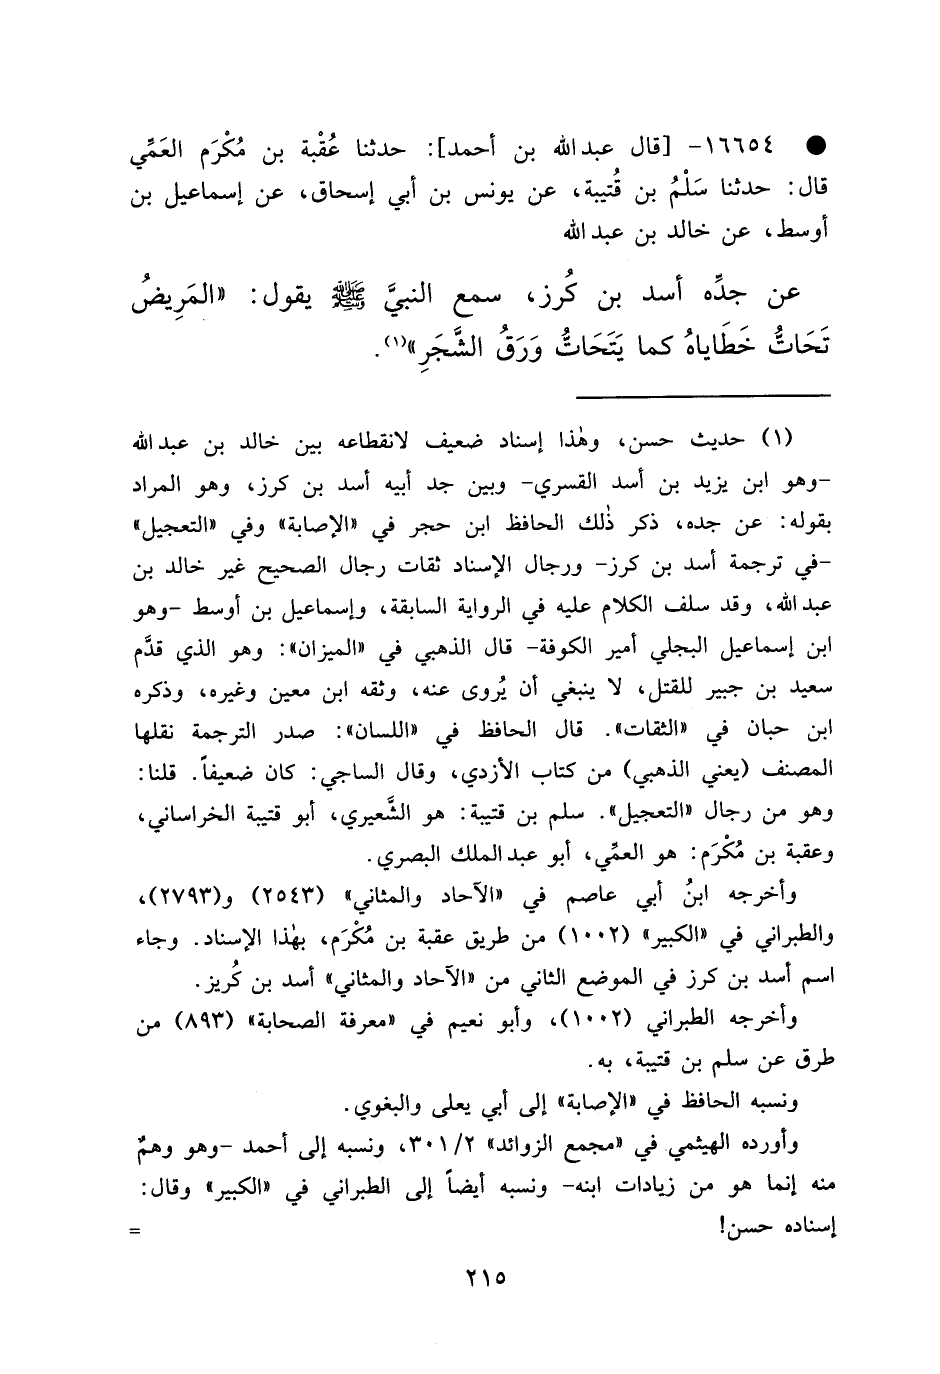 ● ١٦٦٥٤- [قال عبدالله بن أحمد]: حدثنا عُقْبة بن مُكْرَم العَمِّي
قال: حدثنا سَلْمُ بن قُتيبة، عن يونس بن أبي إسحاق، عن إسماعيل بن
أوسط، عن خالد بن عبدالله
عن جدِّه أسد بن كُرز، سمع النبيَّ ﷺ يقول: «المَرِيضُ
تَحَاتُّ خَطَاياهُ كما يَتَحَاتُّ وَرَقُ الشَّجَرِ»(١).
(١) حديث حسن، وهٰذا إسناد ضعيف لانقطاعه بين خالد بن عبدالله
-وهو ابن يزيد بن أسد القسري- وبين جد أبيه أسد بن كرز، وهو المراد
بقوله: عن جده، ذكر ذٰلك الحافظ ابن حجر في «الإصابة» وفي «التعجيل»
-في ترجمة أسد بن كرز- ورجال الإسناد ثقات رجال الصحيح غير خالد بن
عبدالله، وقد سلف الكلام عليه في الرواية السابقة، وإسماعيل بن أوسط -وهو
ابن إسماعيل البجلي أمير الكوفة- قال الذهبي في «الميزان»: وهو الذي قدَّم
سعيد بن جبير للقتل، لا ينبغي أن يُروى عنه، وثقه ابن معين وغيره، وذكره
ابن حبان في «الثقات». قال الحافظ في «اللسان»: صدر الترجمة نقلها
المصنف (يعني الذهبي) من كتاب الأزدي، وقال الساجي: كان ضعيفاً. قلنا:
وهو من رجال «التعجيل». سلم بن قتيبة: هو الشَّعيري، أبو قتيبة الخراساني،
وعقبة بن مُكْرَم: هو العمِّي، أبو عبدالملك البصري.
وأخرجه ابنُ أبي عاصم في «الآحاد والمثاني» (٢٥٤٣) و(٢٧٩٣)،
والطبراني في «الكبير» (١٠٠٢) من طريق عقبة بن مُكْرَم، بهٰذا الإسناد. وجاء
اسم أسد بن كرز في الموضع الثاني من «الآحاد والمثاني» أسد بن كُريز.
وأخرجه الطبراني (١٠٠٢)، وأبو نعيم في «معرفة الصحابة» (٨٩٣) من
طرق عن سلم بن قتيبة، به.
ونسبه الحافظ في «الإصابة» إلى أبي يعلى والبغوي.
وأورده الهيثمي في «مجمع الزوائد» ٣٠١/٢، ونسبه إلى أحمد -وهو وهمٌ
منه إنما هو من زيادات ابنه- ونسبه أيضاً إلى الطبراني في «الكبير» وقال:
إسناده حسن! =
٢١٥